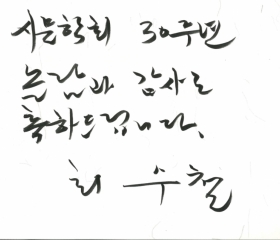 시문학회 30주년
놀람과 감사로
축하드립니다.
최 수철